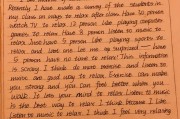 Recently I have made a survey of the students in
my class on ways to relax after class. Some 10 person
watch TV to relax. 13 person like playing computer
games to relax. Have 8 person listen to music to
relax. Just have 5 person like playing sports to
relax, and let me surprised have
9 person have no time to relax! This information
is . I think do more exercise and listen to
music are good way to relax. Exercise can make
you strong and you can feel better when you
. is like your mind to relax. Listen to music
is the best way to relax I think because I like
Listen to music to relax. I think I feel very relaxing